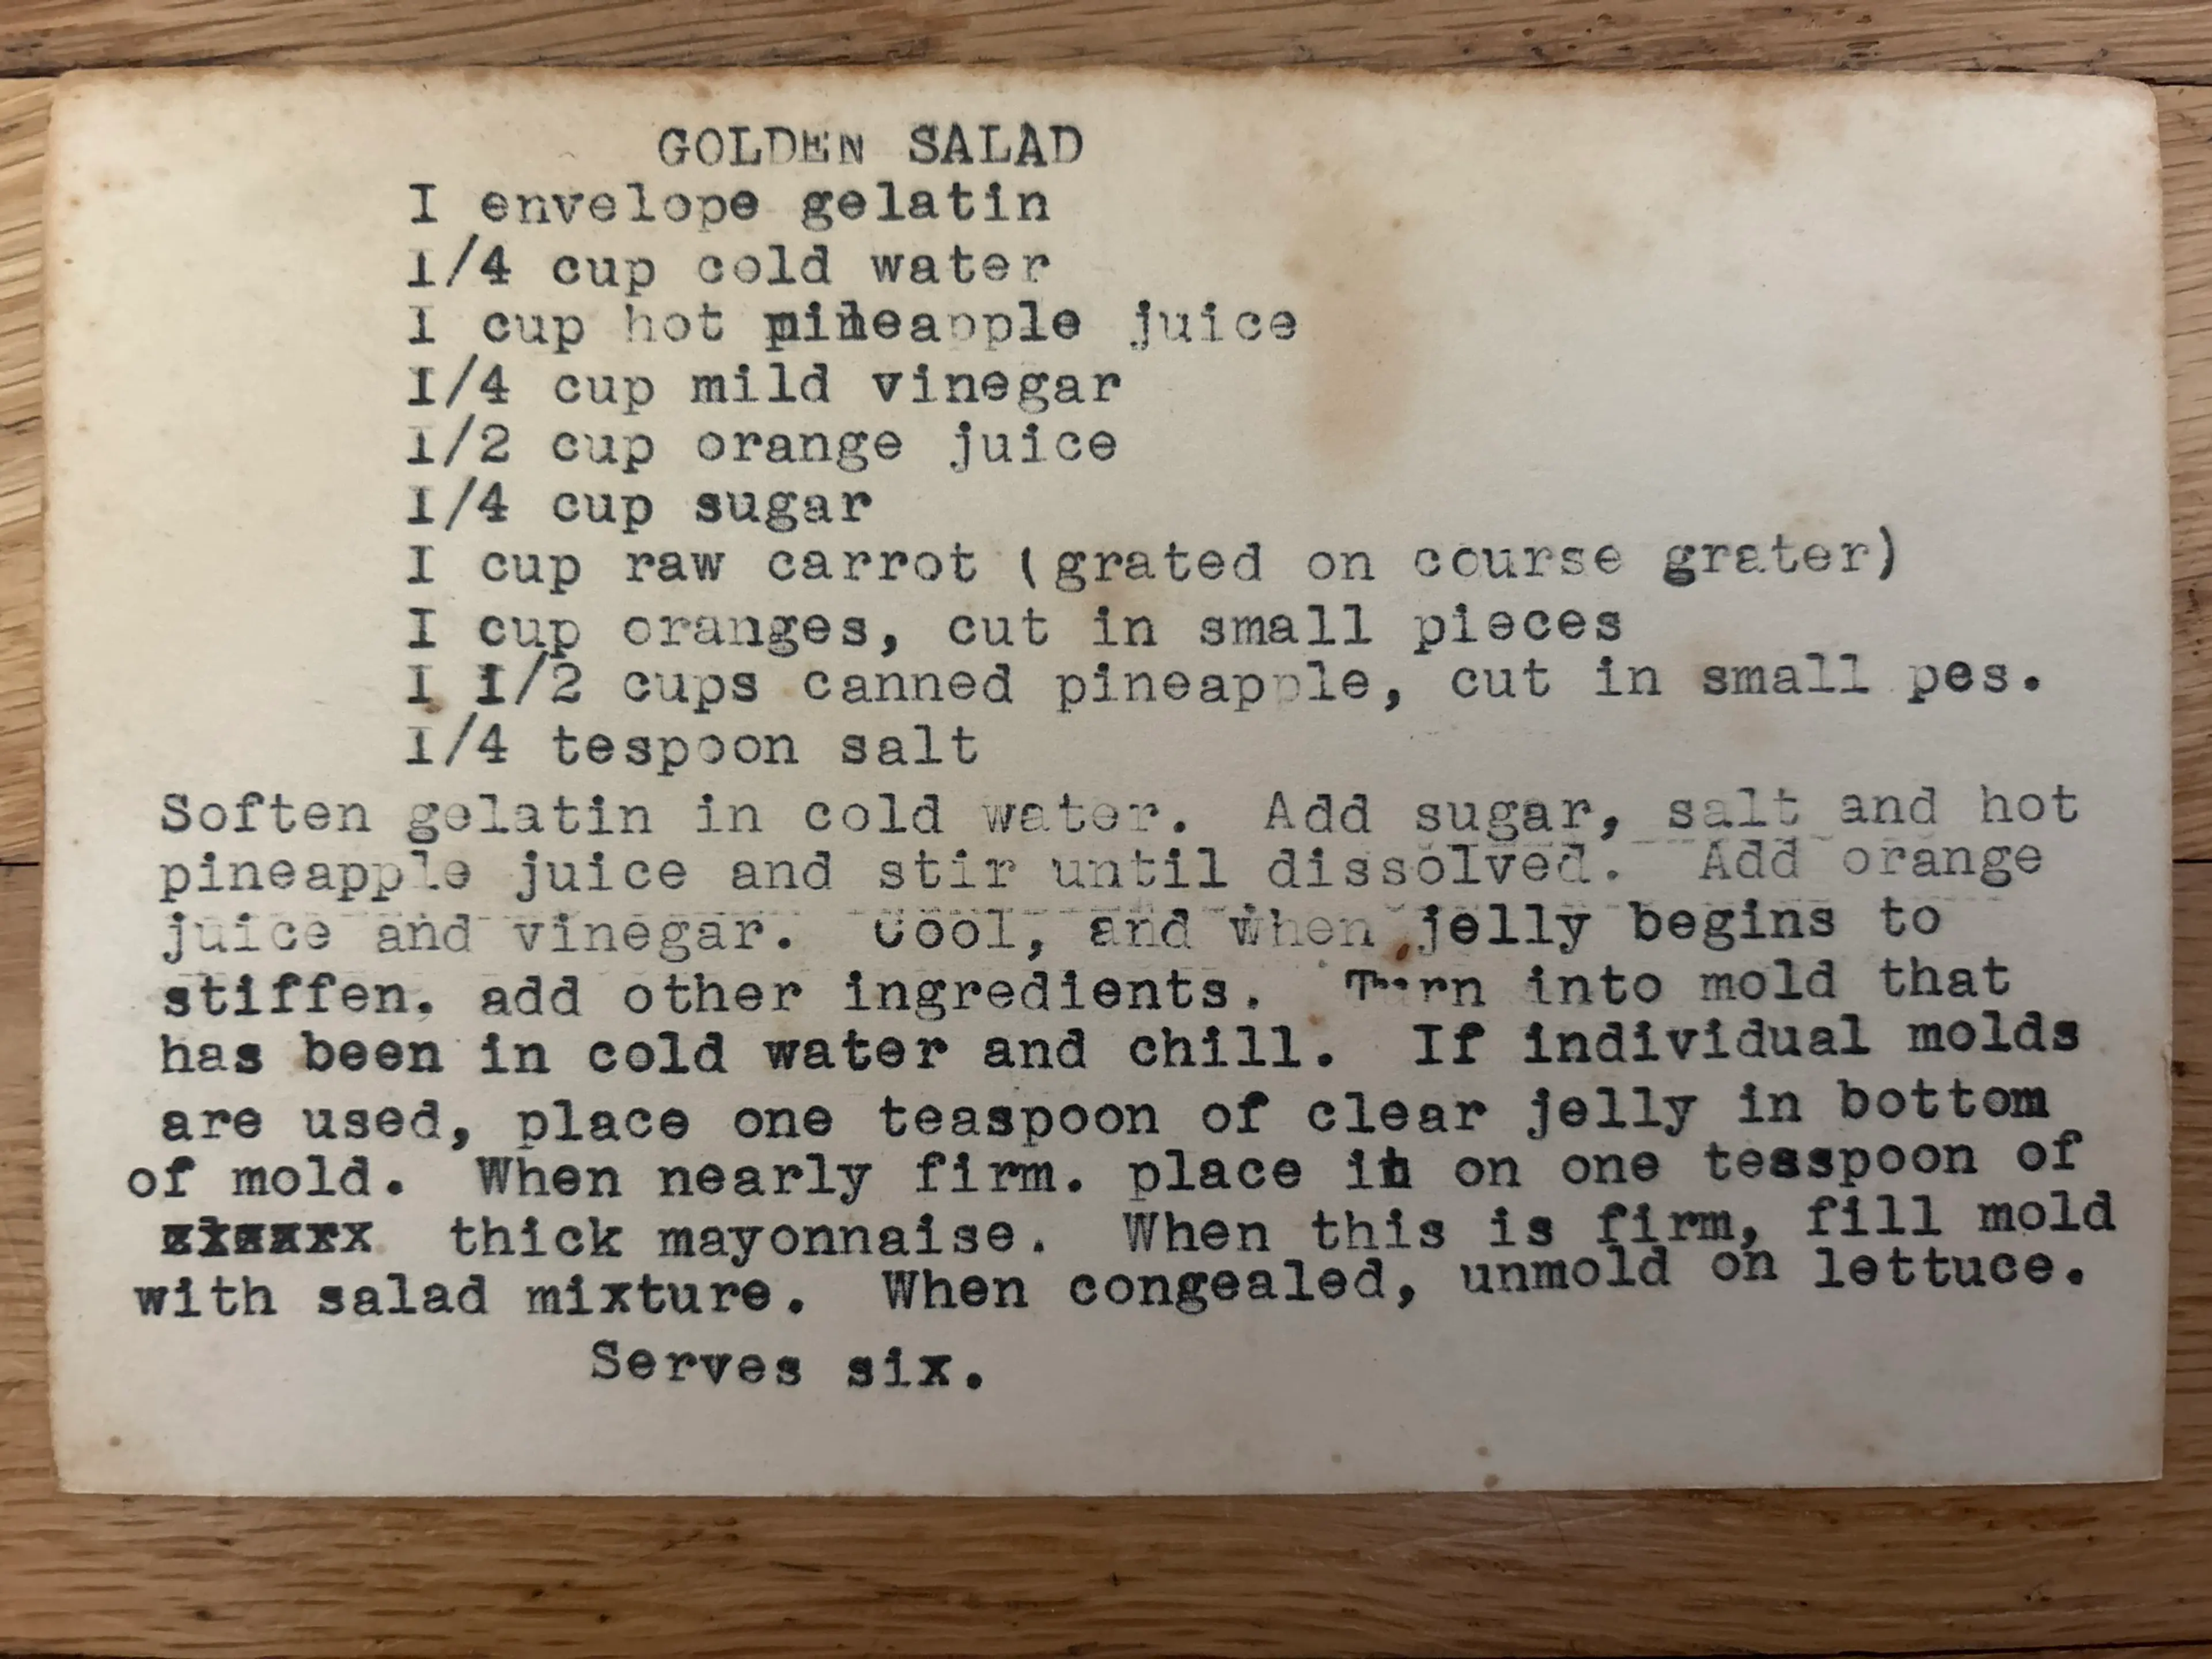 GOLDEN SALAD
I envelope gelatin
1/4 cup cold water
1 cup hot pineapple juice
I/4 cup mild vinegar
1/2 cup orange juice
1/4 cup sugar
I cup raw carrot (grated on course grater)
I cup oranges, cut in small pieces
I 1/2 cups canned pineapple, cut in small pes.
1/4 tespoon salt
Soften gelatin in cold water. Add sugar, salt and hot
pineapple juice and stir until dissolved. Add orange
juice and vinegar. Cool, and when jelly begins to
stiffen, add other ingredients. Turn into mold that
has been in cold water and chill. If individual molds
are used, place one teaspoon of clear jelly in bottom
of mold. When nearly firm. place on one teaspoon of
thick mayonnaise. When this is firm, fill mold
with salad mixture. When congealed, unmold on lettuce.
Serves six.